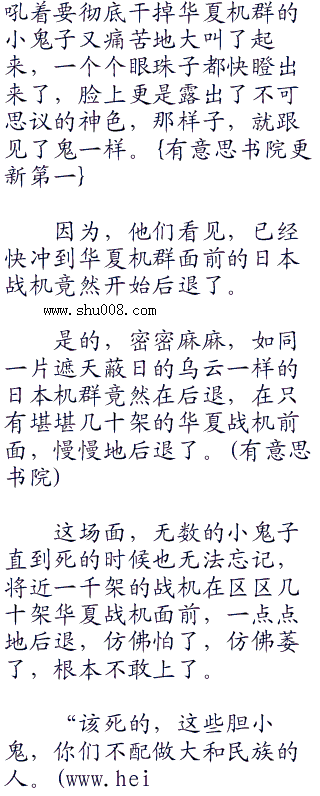 吼着要彻底干掉华夏机群的
小鬼子又痛苦地大叫了起
来，一个个眼珠子都快瞪出
来了，脸上更是露出了不可
思议的神色，那样子，就跟
见了鬼一样。{有意思书院更
新第一}
因为，他们看见，已经
快冲到华夏机群面前的日本
战机竟然开始后退了。
www.shu008.com
是的，密密麻麻，如同
一片遮天蔽日的乌云一样的
日本机群竟然在后退，在只
有堪堪几十架的华夏战机前
面，慢慢地后退了。(有意思
书院)
这场面，无数的小鬼子
直到死的时候也无法忘记，
将近一千架的战机在区区几
十架华夏战机面前，一点点
地后退，仿佛怕了，仿佛萎
了，根本不敢上了。
“该死的，这些胆小
鬼，你们不配做大和民族的
人。(www.hei